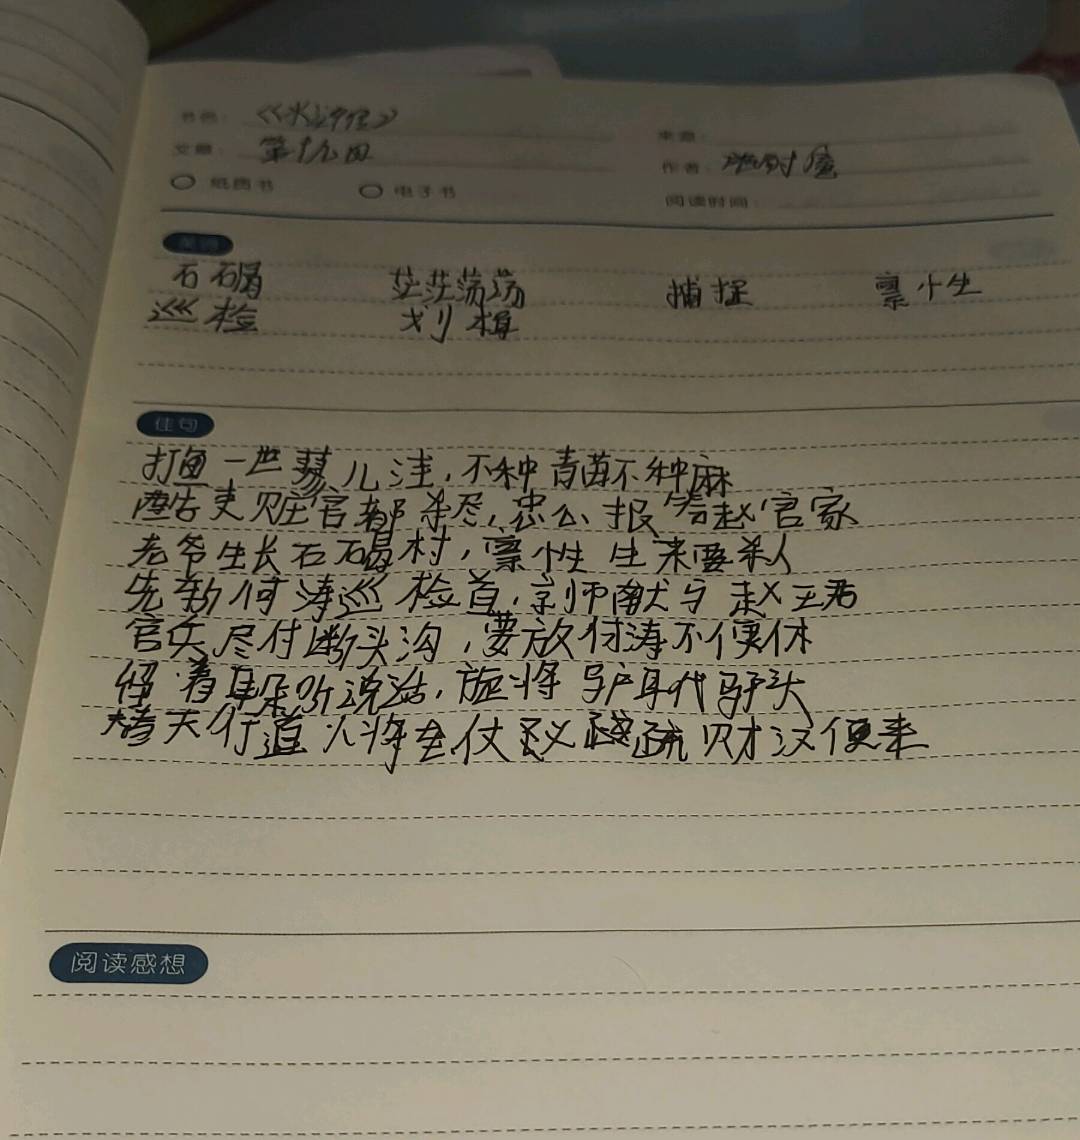 书名： 《水浒传》
来源：
文章： 第十九回
作者： 施耐庵
纸质书 电子书
阅读时间：
石碣 茫茫荡荡 捕捉 禀性
巡检 划楫
佳句
打鱼一世蓼儿洼，不种青苗不种麻
酷吏赃官都杀尽，忠心报答赵官家
老爷生长石碣村，禀性生来要杀人
先斩何涛巡检首，京师献与赵王君
官兵尽付断头沟，要放何涛不便休
留着耳朵听说话，旋将驴耳代驴头
替天行道人将至，仗义疏财汉便来
阅读感想